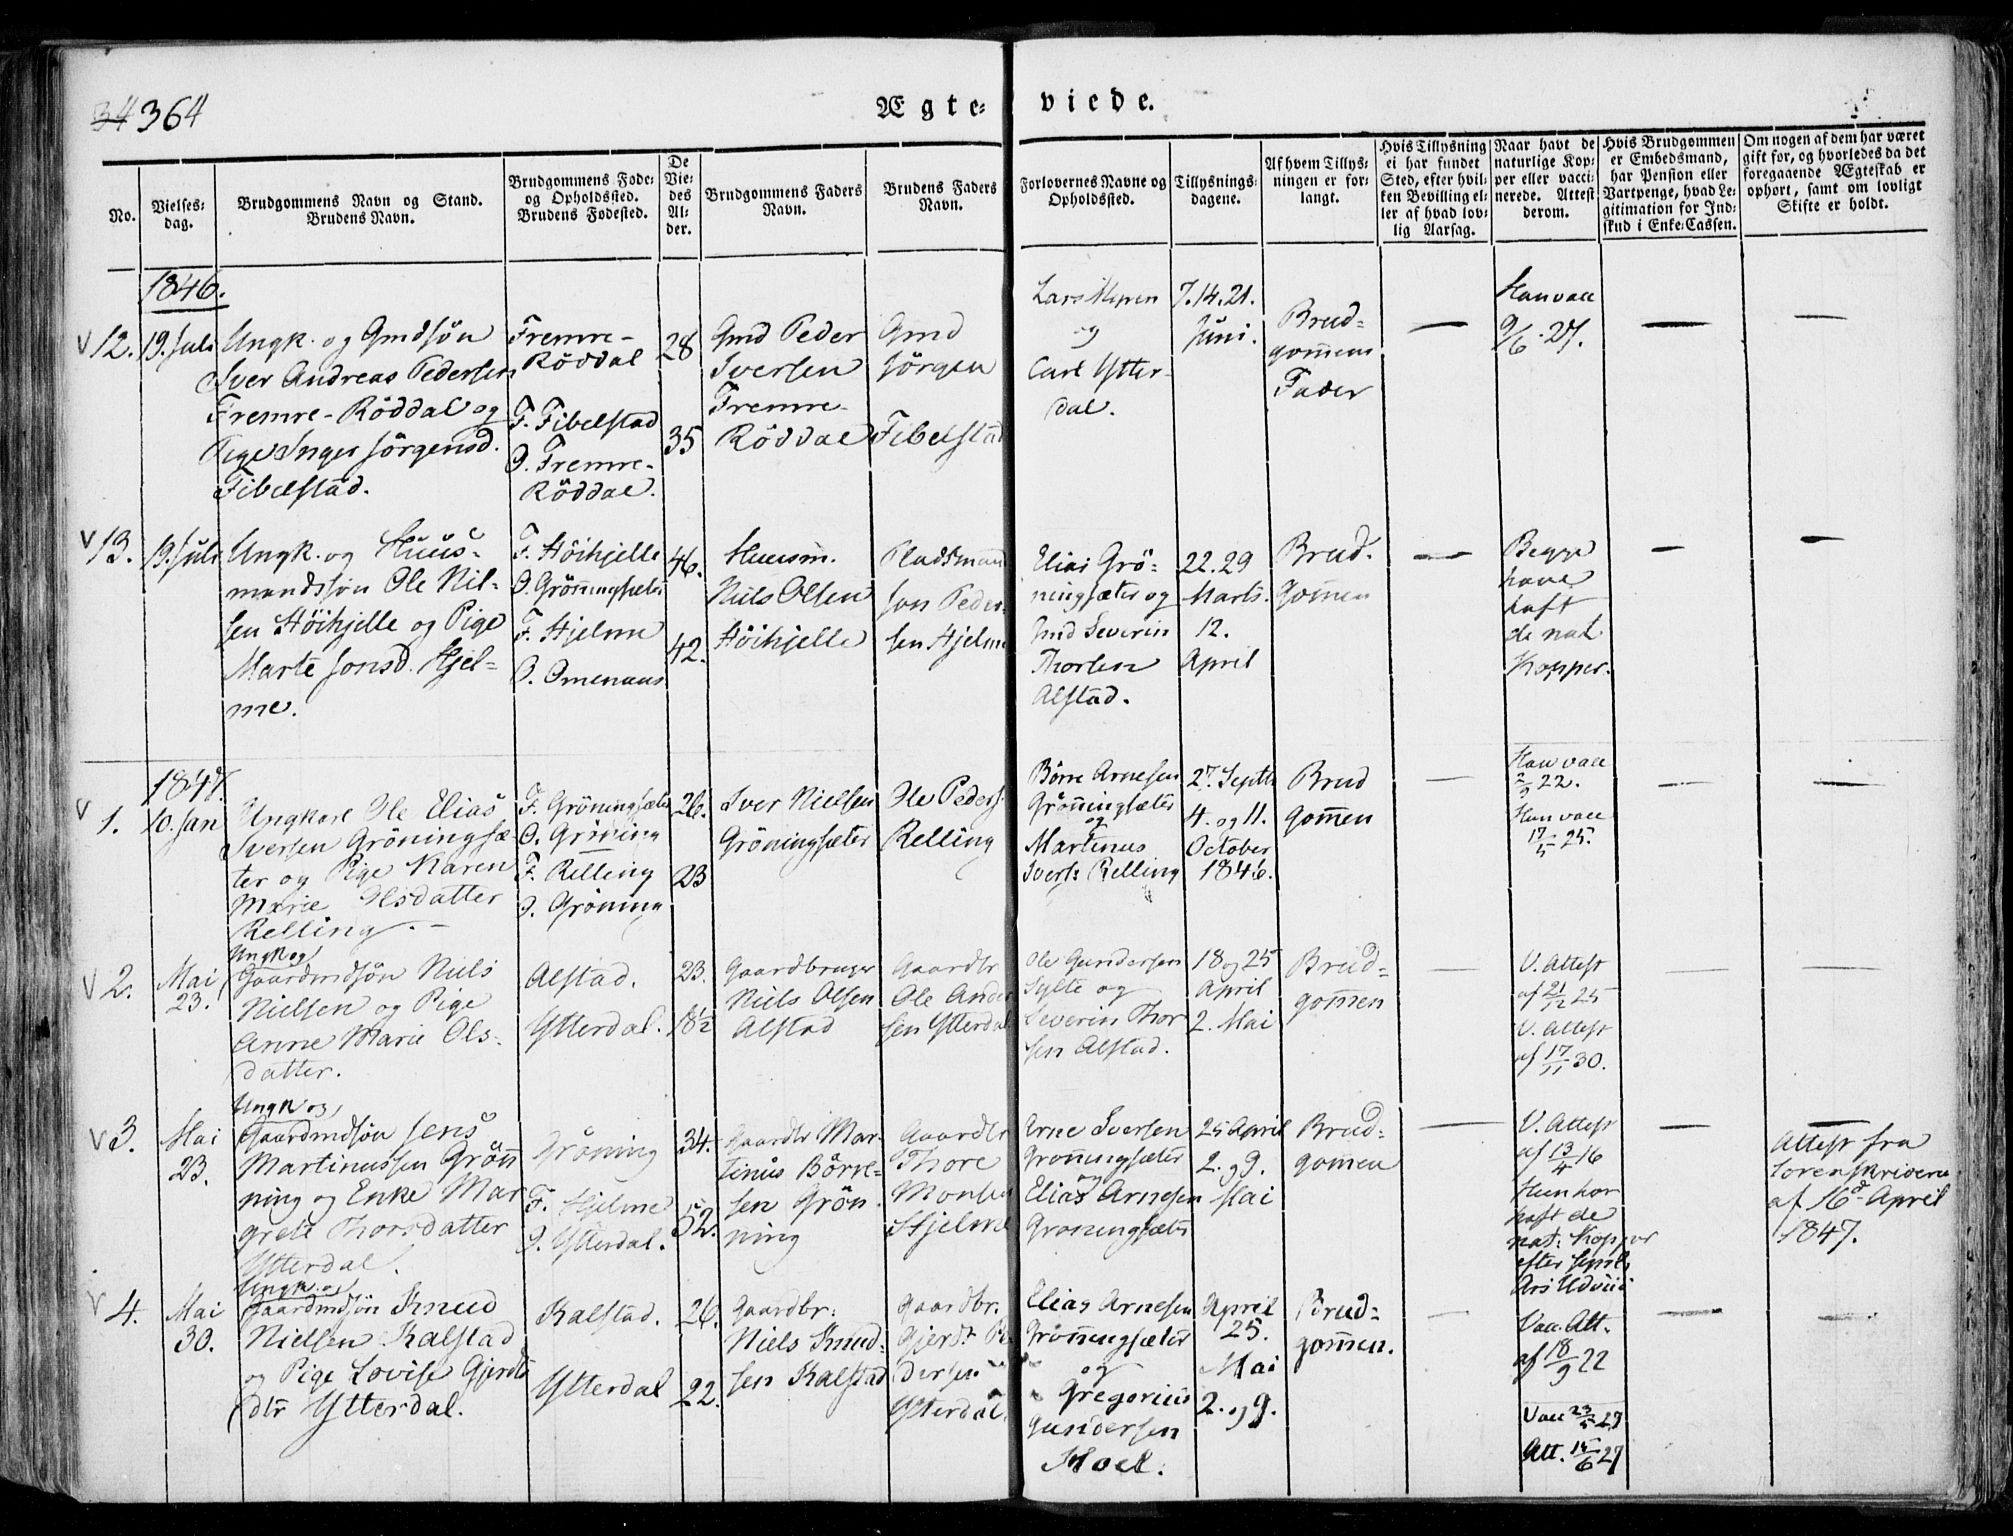 34 364
Ægte-viede.
No.
Vielses-
dag.
Brudgommens Navn og Stand.
Brudens Navn.
Brudgommens Føde-
og Opholdssted.
Brudens Fødested.
De
Vie-
des
Al-
der.
Brudgommens Faders
Navn.
Brudens Faders
Navn.
Forlovernes Navne og
Opholdssted.
Tillysnings-
dagene.
Af hvem Tillys-
ningen er for-
langt.
Hvis Tillysning
ei har fundet
Sted, efter hvil-
ken Bevilling el-
ler af hvad lov-
lig Aarsag.
Naar havt de
naturlige Kop-
per eller vacci-
nerede. Attest
derom.
Hvis Brudgommen
er Embedsmand,
har Pension eller
Vartpenge, hvad Le-
gitimation for Ind-
skud i Enke-Cassen.
Om nogen af dem har været
gift før, og hvorledes da det
foregaaende Ægteskab er
ophørt, samt om lovligt
Skifte er holdt.
1846.
V 12.
19. Juli
Ungk. og Gmdsön
Iver Andreas Pedersen
Fremre-Röddal og
Pige Inger Jörgensd.
Fibelstad.
Fremre-
Röddal
F. Fibelstad
O. Fremre-
Röddal.
28
35
Gmd Peder
Iversen
Fremre-
Röddal
Gmd
Jörgen
Fibelstad
Lars
og
Carl Ytter-
dal.
7. 14. 21.
Juni.
Brud-
gomens
Fader
Han vacc
9/6 - 27.
V 13.
19. Juli
Ungk. og Huus-
mandssön Ole Nil-
sen Höihjelle og Pige
Marte Jonsd. Hjel-
me.
F. Höihjelle
O. Gröningsæter
F. Hjelme
O. Omenaas
46.
42.
Huusm.
Niels Olsen
Höihjelle
Pladsmand
Jon Peder-
sen Hjelme
Elias Grö-
ningsæter og
Gmd Severin
Thorsen
Alstad.
22. 29
Marts.
12.
April
Brud-
gomen
Begge
have
haft
de nat
Kopper.
1847.
V 1.
10. Jan
Ungkarl Ole Elias
Iversen Gröningsæ-
ter og Pige Karen
Marie Olsdatter
Relling. -
F. Gröningsæter
O. Gröning
F. Relling
O. Gröning
26.
23
Iver Nielsen
Gröningsæter
Ole Peders.
Relling
Börre Arnesen
Gröningsæter
og
Martinus
Ivers. Relling
27. Septb
4. og 11.
October
1846.
Brud
gomen
Han vacc
2/9 22.
Hun vacc
17/5 25.
V 2.
Mai
23.
Ungk og
Gaardmdsön Niels
Nielsen og Pige
Anne Marie Ols-
datter.
Alstad.
Ytterdal.
23.
18½
Gaardbruger
Niels Olsen
Alstad
Gaardbr
Ole Ander
sen Ytterdal
Ole Gundersen
Sylte og
Severin Thor
sen Alstad.
18 og 25
April
2. Mai
Brud-
gomen
V. Attest
af 21/12 25
V. Attest
af 17/11 30.
V 3.
Mai
23.
Ungk og
Gaardmdsön Jens
Martinussen Grön
ning og Enke Mar
grete Thorsdatter
Ytterdal.
Gröning
F. Hjelme
O. Ytterdal.
34.
52.
Gaardbr Mar-
tinus Börre-
sen Grön
ning
Gaardbr
Thore
Monsen
Hjelme
Arne Iversen
Groningsæter
og
Elias Arnesen
Groningsæter
25 April
2. og 9.
Mai
Brud-
gomen
V. Attest
af 13/4 16
Hun har
haft de
nat: Kopper
efter
Attest fra
Sorenskriveren
af 16d April
1847.
V 4.
Mai
30.
Ungk. og
Gaardmdsön Knud
Nielsen Kalstad
og Pige Lovise Gjerds
dtr Ytterdal.
Kalstad.
Ytterdal
26.
22.
Gaardbr:
Niels Knud-
sen Kalstad
Gaardbr.
Gjerdt Pe
dersen
Ytterdal.
Elias Arnesen
Gröningsæter
og
Gregorius
Gundersen
Hoel.
April
25.
Mai
2. og 9.
Brud-
gomen.
Vacc. Att.
af 18/9 22
Vacc 23/5 27
Att. 15/6 27